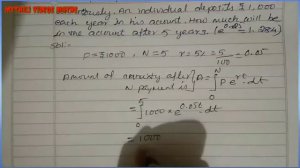 ously. An individual deposits ₹ 1,000
each year in his account. How much will be
in the account after 5 years (e^0.25 = 1.284)
sol:-
P = ₹1000, N = 5 r = 5% = 5/100 = 0.05
Amount of annuity after N payment is} A = ∫₀ᴺ P e^rt · dt
= ∫₀⁵ 1000 × e^0.05t · dt
= 1000